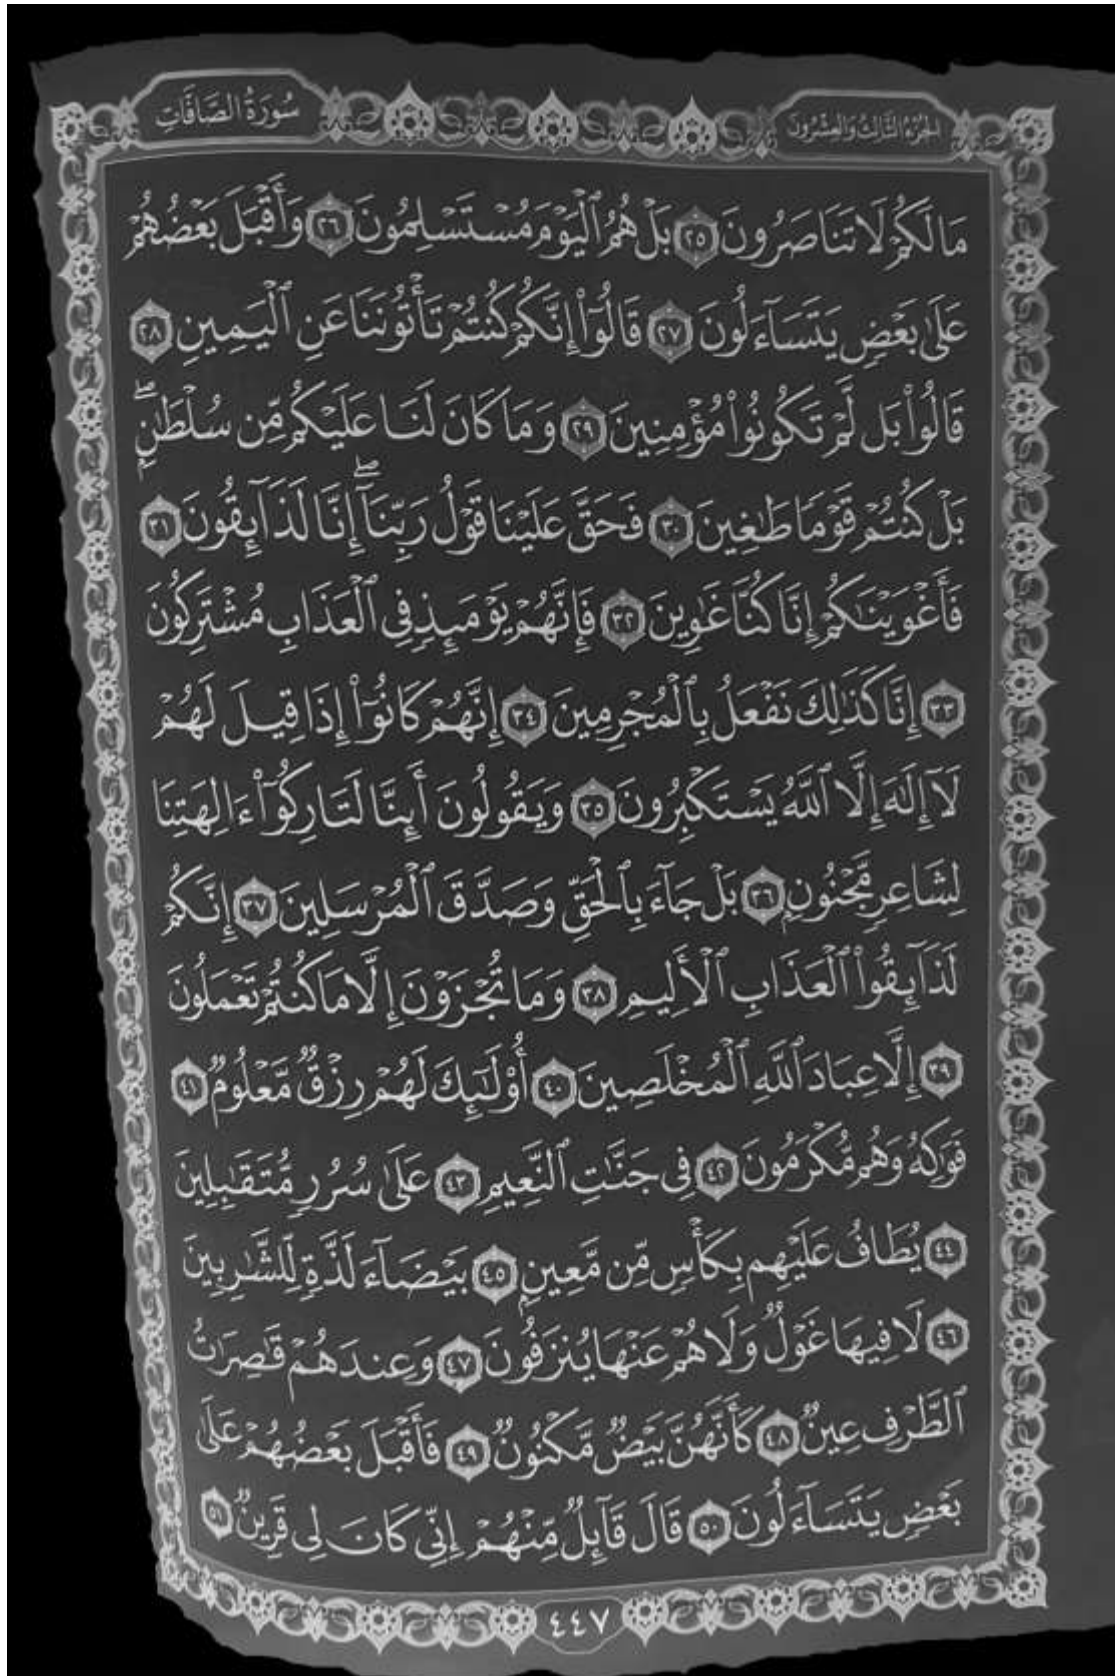 الجزء الثالث والعشرون
سورة الصافات
مَا لَكُمْ لَا تَنَاصَرُونَ ٢٥ بَلْ هُمُ ٱلْيَوْمَ مُسْتَسْلِمُونَ ٢٦ وَأَقْبَلَ بَعْضُهُمْ
عَلَىٰ بَعْضٍ يَتَسَآءَلُونَ ٢٧ قَالُوٓا۟ إِنَّكُمْ كُنتُمْ تَأْتُونَنَا عَنِ ٱلْيَمِينِ ٢٨
قَالُوا۟ بَل لَّمْ تَكُونُوا۟ مُؤْمِنِينَ ٢٩ وَمَا كَانَ لَنَا عَلَيْكُم مِّن سُلْطَٰنٍۭ ۖ
بَلْ كُنتُمْ قَوْمًا طَٰغِينَ ٣٠ فَحَقَّ عَلَيْنَا قَوْلُ رَبِّنَآ ۖ إِنَّا لَذَآئِقُونَ ٣١
فَأَغْوَيْنَٰكُمْ إِنَّا كُنَّا غَٰوِينَ ٣٢ فَإِنَّهُمْ يَوْمَئِذٍ فِى ٱلْعَذَابِ مُشْتَرِكُونَ
٣٣ إِنَّا كَذَٰلِكَ نَفْعَلُ بِٱلْمُجْرِمِينَ ٣٤ إِنَّهُمْ كَانُوٓا۟ إِذَا قِيلَ لَهُمْ
لَآ إِلَٰهَ إِلَّا ٱللَّهُ يَسْتَكْبِرُونَ ٣٥ وَيَقُولُونَ أَئِنَّا لَتَارِكُوٓا۟ ءَالِهَتِنَا
لِشَاعِرٍ مَّجْنُونٍۭ ٣٦ بَلْ جَآءَ بِٱلْحَقِّ وَصَدَّقَ ٱلْمُرْسَلِينَ ٣٧ إِنَّكُمْ
لَذَآئِقُوا۟ ٱلْعَذَابِ ٱلْأَلِيمِ ٣٨ وَمَا تُجْزَوْنَ إِلَّا مَا كُنتُمْ تَعْمَلُونَ
٣٩ إِلَّا عِبَادَ ٱللَّهِ ٱلْمُخْلَصِينَ ٤٠ أُو۟لَٰٓئِكَ لَهُمْ رِزْقٌ مَّعْلُومٌ ٤١
فَوَٰكِهُ وَهُم مُّكْرَمُونَ ٤٢ فِى جَنَّٰتِ ٱلنَّعِيمِ ٤٣ عَلَىٰ سُرُرٍ مُّتَقَٰبِلِينَ
٤٤ يُطَافُ عَلَيْهِم بِكَأْسٍ مِّن مَّعِينٍۭ ٤٥ بَيْضَآءَ لَذَّةٍ لِّلشَّٰرِبِينَ
٤٦ لَا فِيهَا غَوْلٌ وَلَا هُمْ عَنْهَا يُنزَفُونَ ٤٧ وَعِندَهُمْ قَٰصِرَٰتُ
ٱلطَّرْفِ عِينٌ ٤٨ كَأَنَّهُنَّ بَيْضٌ مَّكْنُونٌ ٤٩ فَأَقْبَلَ بَعْضُهُمْ عَلَىٰ
بَعْضٍ يَتَسَآءَلُونَ ٥٠ قَالَ قَآئِلٌ مِّنْهُمْ إِنِّى كَانَ لِى قَرِينٌ ٥١
٤٤٧